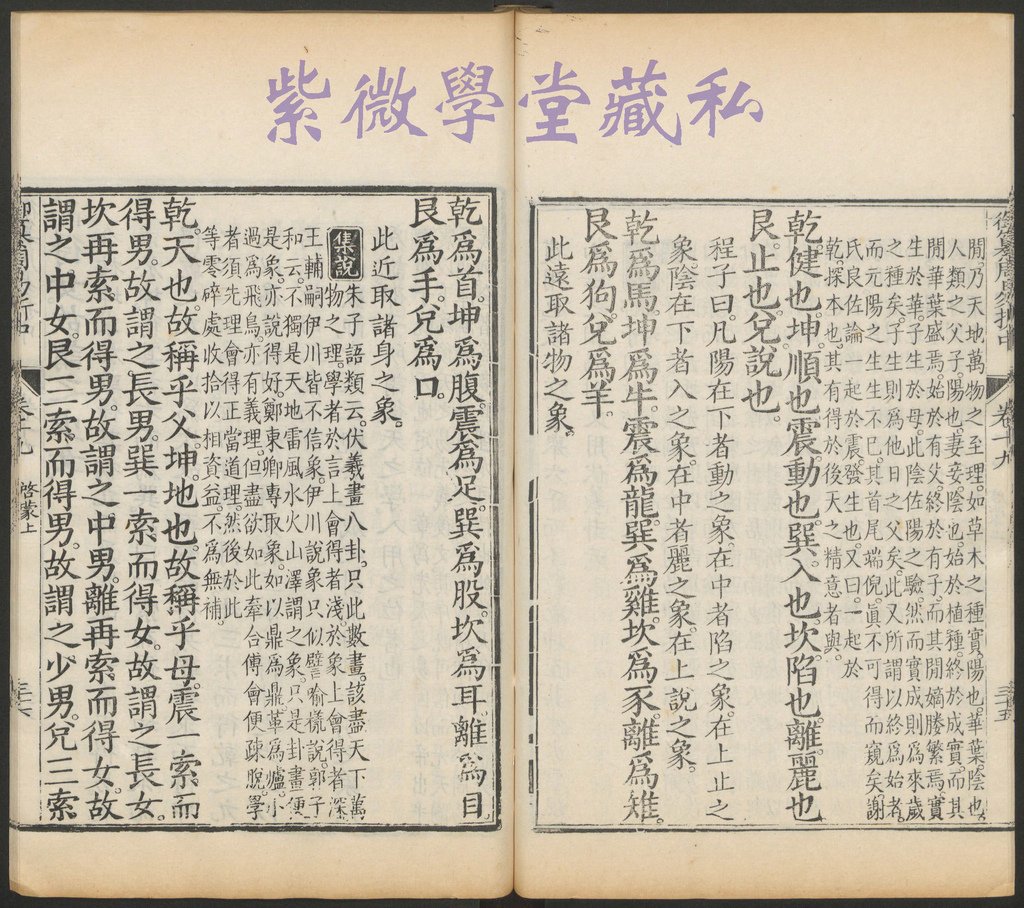 紫微學堂藏私
閒乃天地萬物之至理。如草木之種實陽也。華葉陰也。
人類之父子。陽也。妻妾陰也。始於植種。終於成實。而其
閒華葉盛焉。始於有父。終於有子。而其閒嫡媵繁焉。實
生於華。子生於母。此陰佐陽之驗。然而實成則爲來歲
之種矣。子生則爲他日之父矣。此又所謂以終爲始者。
而元陽之生生不已。其首尾端倪。眞不可得而窺矣。謝
氏良佐論一起於震發生也。又曰。一起於
乾探本也。其有得於後天之精意者與。
乾。健也。坤。順也。震。動也。巽。入也。坎。陷也。離。麗也。
艮。止也。兌。說也。
程子曰。凡陽在下者動之象。在中者陷之象。在上止之
象。陰在下者入之象。在中者麗之象。在上說之象。
乾爲馬。坤爲牛。震爲龍。巽爲雞。坎爲豕。離爲雉。
艮爲狗。兌爲羊。
此遠取諸物之象。
卷十九
三十五
乾爲首。坤爲腹。震爲足。巽爲股。坎爲耳。離爲目。
艮爲手。兌爲口。
此近取諸身之象。
集說
朱子語類云。伏羲畫八卦。只此數畫。該盡天下萬
物之理。學者於言上會得者淺。於象上會得者深。
王輔嗣伊川皆不信象。伊川說象。只似譬喻樣說。郭子
和云。不獨是天地雷風水火山澤謂之象。只是卦畫便
是象。亦說得好。鄭東卿專取象。如以鼎爲鼎。革爲爐。小
過爲飛鳥。亦有義理。但盡欲如此牽合傅會。便疎脫。學
者須先理會得正當道理。然後於此
等零碎處。收拾以相資益。不爲無補。
乾。天也。故稱乎父。坤。地也。故稱乎母。震一索而
得男。故謂之長男。巽一索而得女。故謂之長女。
坎再索而得男。故謂之中男。離再索而得女。故
謂之中女。艮三索而得男。故謂之少男。兌三索
啓蒙上
三十六